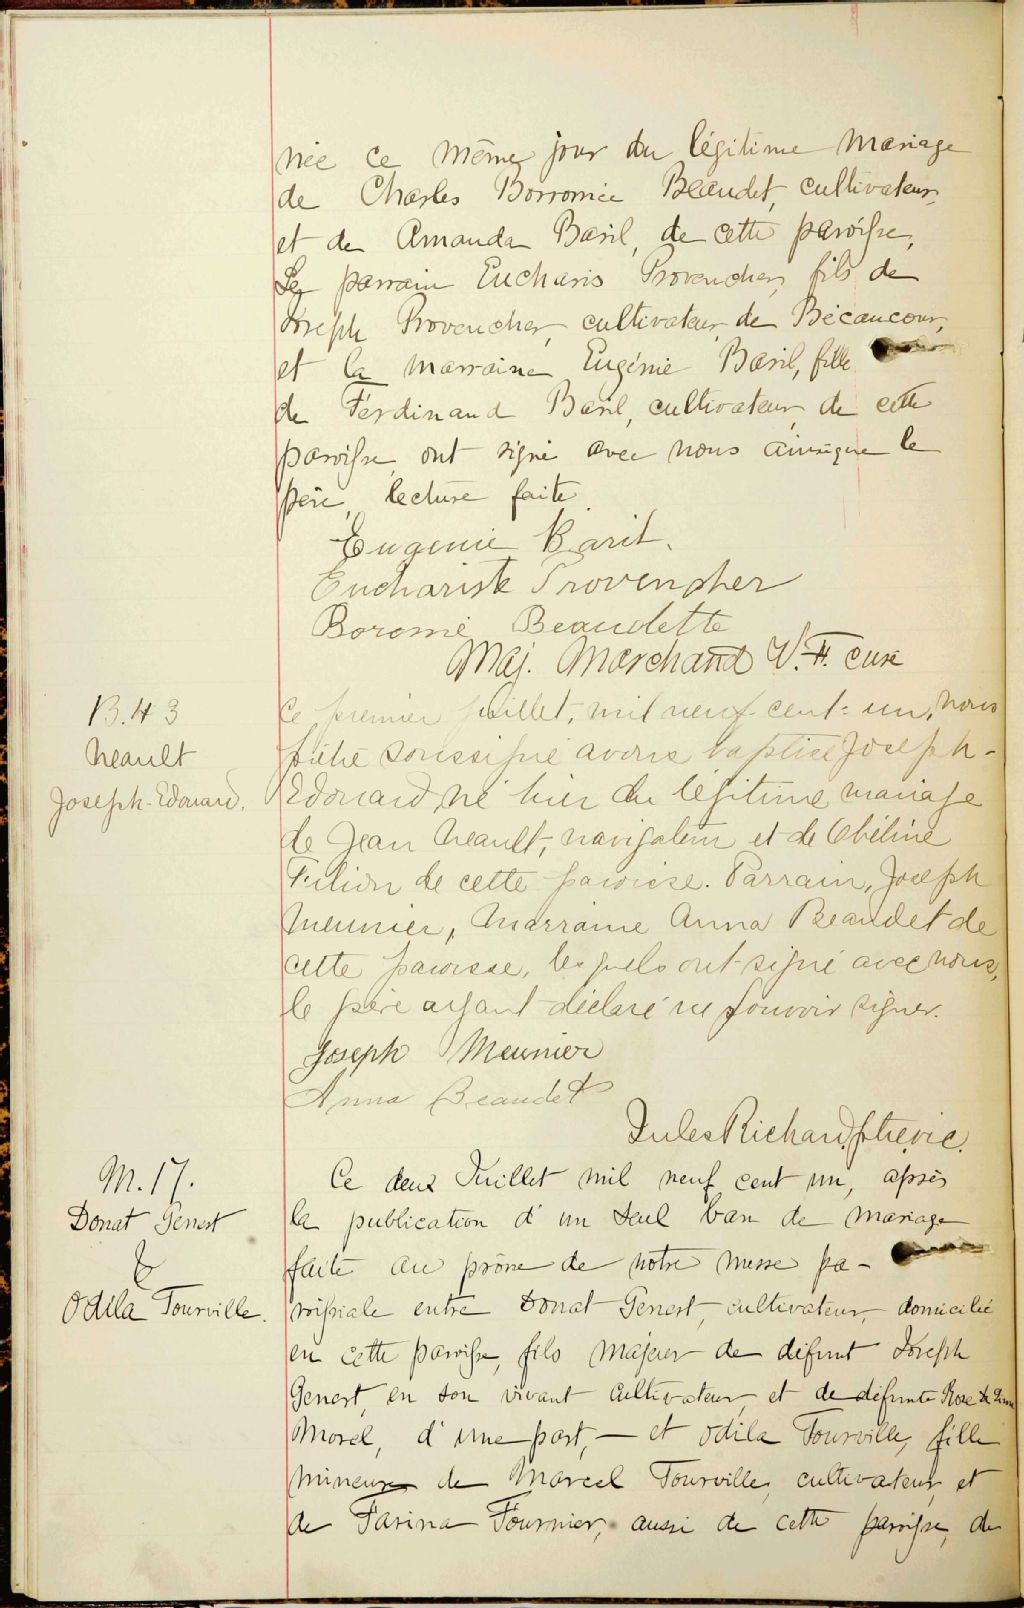 née ce même jour du légitime mariage
de Charles Borromée Beaudet, cultivateur,
et de Amanda Baril, de cette paroisse,
Le parrain Eucharis Provencher, fils de
Joseph Provencher, cultivateur de Bécancour,
et la marraine Eugénie Baril, fille
de Ferdinand Baril, cultivateur, de cette
paroisse, ont signé avec nous ainsique le
père, lecture faite
Eugenie Baril.
Euchariste Provencher
Boromé Beaudette
Maj. Marchand V. F. curé
B. 43
Neault
Joseph-Edouard.
Ce premier juillet, mil neuf-cent-un, nous
prêtre soussigné avons baptisé Joseph-
Edouard, né hier du légitime mariage
de Jean Neault, navigateur et de Obéline
Filion de cette paroisse. Parrain, Joseph
Meunier, Marraine Anna Beaudet de
cette paroisse, lesquels ont signé avec nous,
le père ayant déclaré ne pouvoir signer.
Joseph Meunier
Anna Beaudet
Jules Richard, ptre, vic.
M. 17.
Donat Genest
&
Odila Tourville.
Ce deux Juillet mil neuf cent un, après
la publication d'un seul ban de mariage
faite au prône de notre messe pa-
roissiale entre Donat Genest, cultivateur, domicilié
en cette paroisse, fils majeur de défunt Joseph
Genest, en son vivant cultivateur, et de défunte Rose de Lima
Morel, d'une part, — et Odila Tourville, fille
mineure de Marcel Tourville, cultivateur, et
de Farina Fournier, aussi de cette paroisse, de